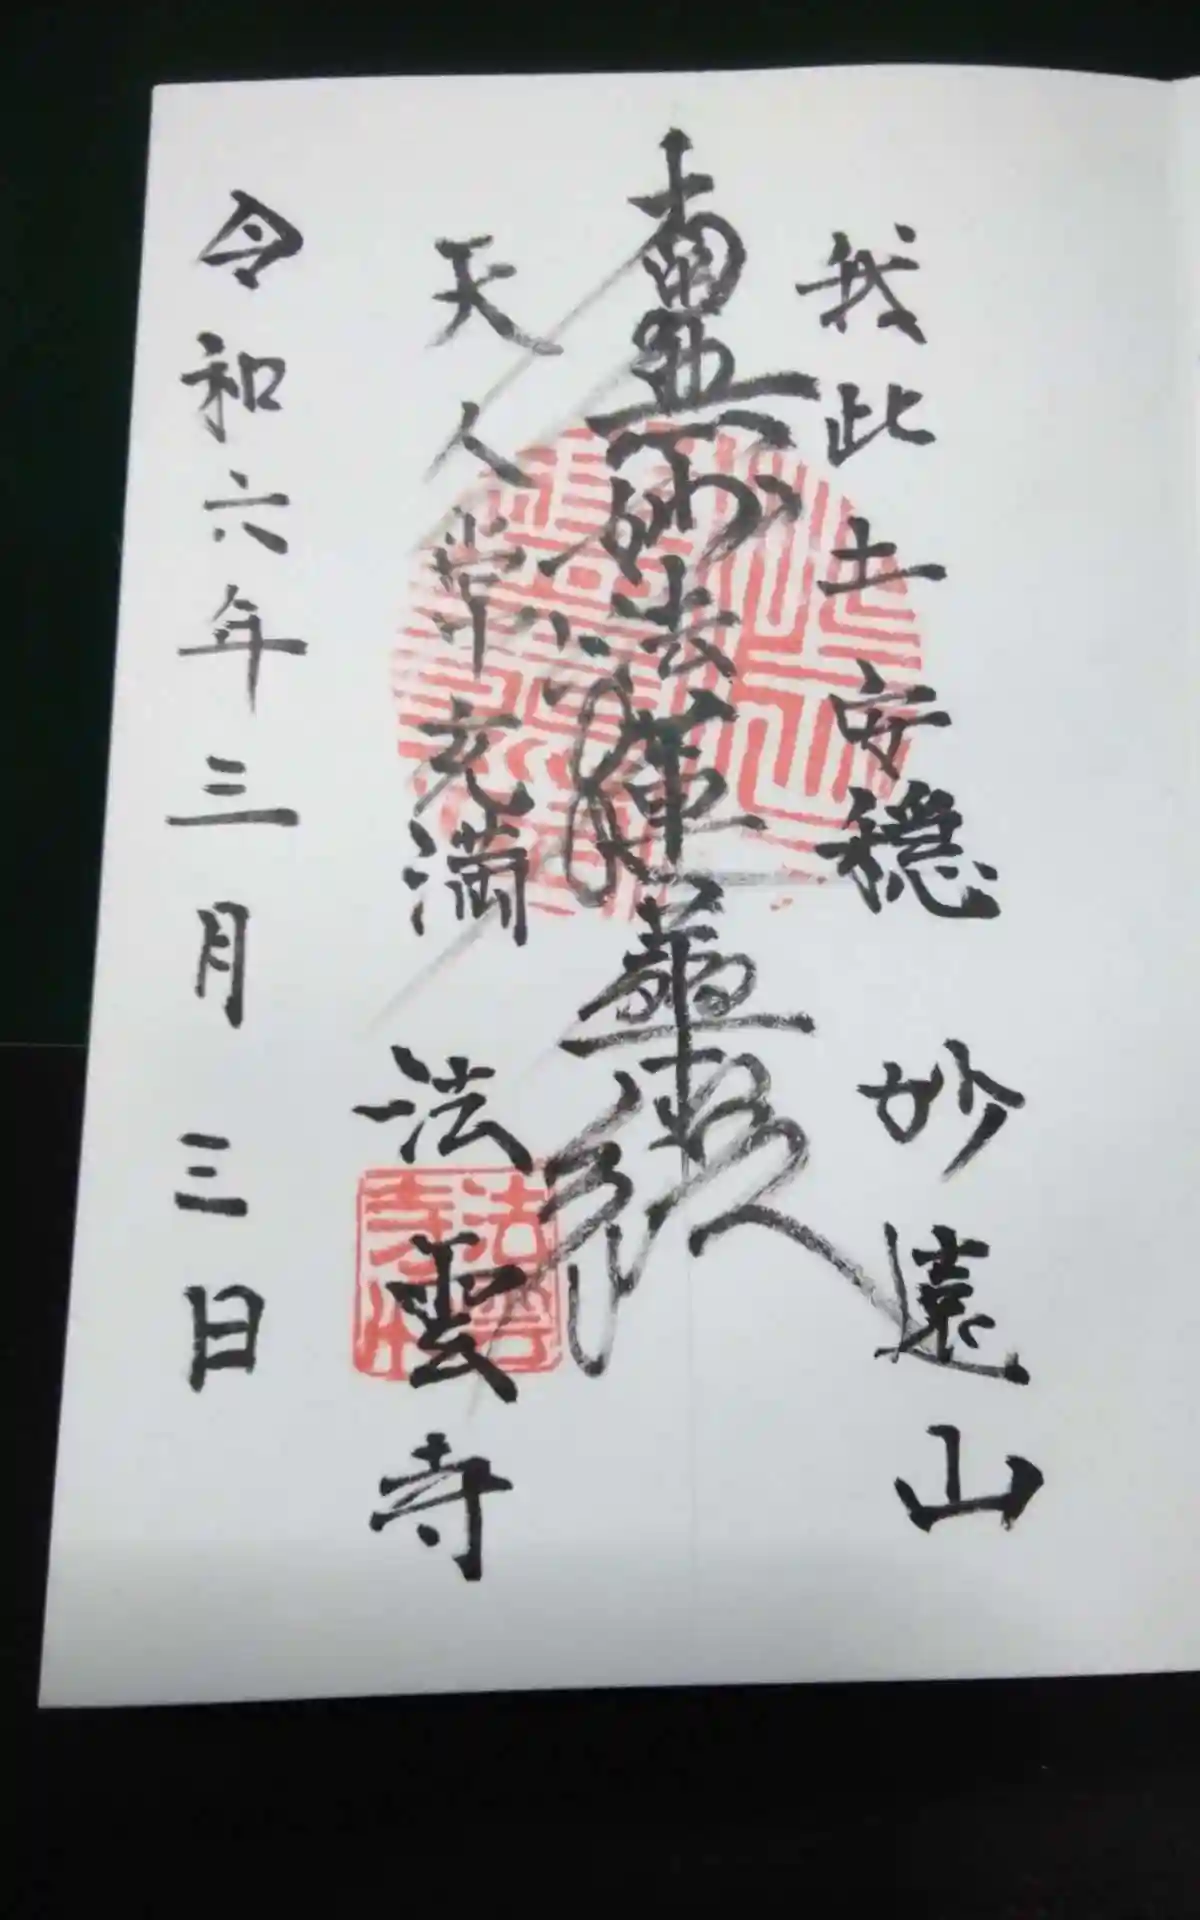 我此土安穏 妙遠山
南無妙法蓮華経
天人常充満 法雲寺
令和六年三月三日